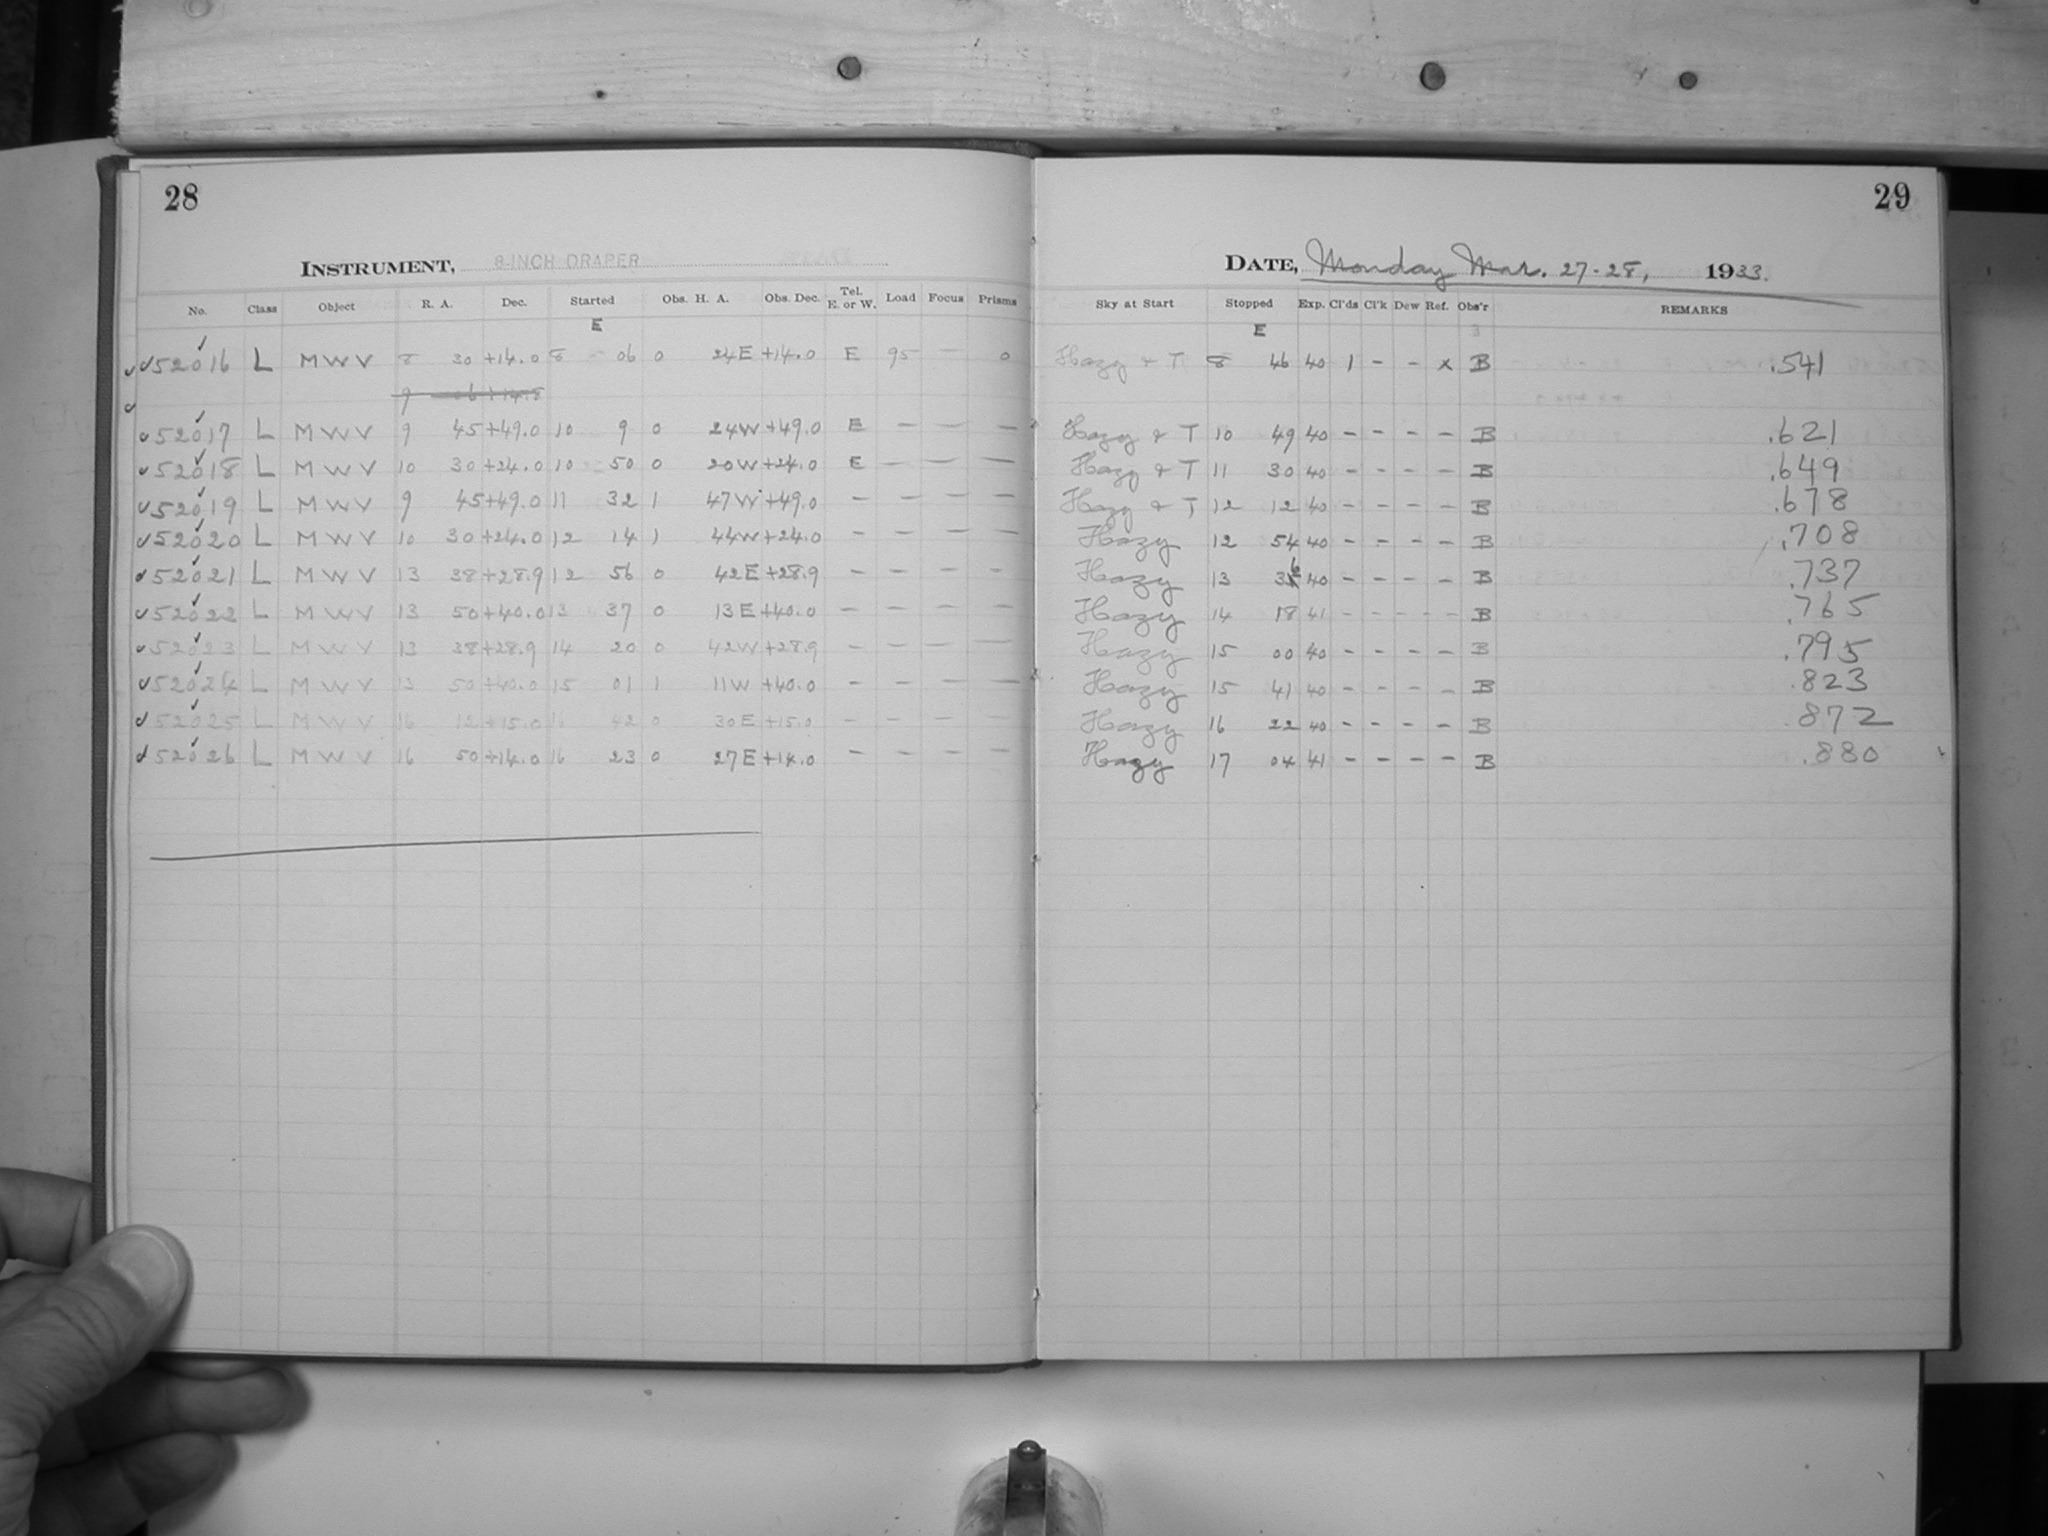 28
INSTRUMENT, 8-INCH DRAPER
No. Class Object R. A. Dec. Started Obs. H. A. Obs. Dec. Tel. E. or W. Load Focus Prisms
E
✓✓52016 L M W V 8 30 +14.0 8 06 0 24E +14.0 E 95 — 0
✓ 9 06 +14.8
✓52017 L M W V 9 45 +49.0 10 9 0 24W +49.0 E — — —
✓52018 L M W V 10 30 +24.0 10 50 0 20W +24.0 E — — —
✓52019 L M W V 9 45 +49.0 11 32 1 47W +49.0 — — — —
✓52020 L M W V 10 30 +24.0 12 14 1 44W +24.0 — — — —
✓52021 L M W V 13 38 +28.9 12 56 0 42E +28.9 — — — —
✓52022 L M W V 13 50 +40.0 13 37 0 13E +40.0 — — — —
✓52023 L M W V 13 38 +28.9 14 20 0 42W +28.9 — — — —
✓52024 L M W V 13 50 +40.0 15 01 1 11W +40.0 — — — —
✓52025 L M W V 16 12 +15.0 16 42 0 30E +15.0 — — — —
✓52026 L M W V 16 50 +14.0 16 23 0 27E +14.0 — — — —
29
DATE, Monday Mar. 27-28, 1933.
Sky at Start Stopped Exp. Cl'ds Cl'k Dew Ref. Obs'r REMARKS
E
Hazy & T 8 46 40 1 - - x B .541
Hazy & T 10 49 40 - - - - B .621
Hazy & T 11 30 40 - - - - B .649
Hazy & T 12 12 40 - - - - B .678
Hazy 12 54 40 - - - - B .708
Hazy 13 36 40 - - - - B .737
Hazy 14 18 41 - - - - B .765
Hazy 15 00 40 - - - - B .795
Hazy 15 41 40 - - - - B .823
Hazy 16 22 40 - - - - B .872
Hazy 17 04 41 - - - - B .880